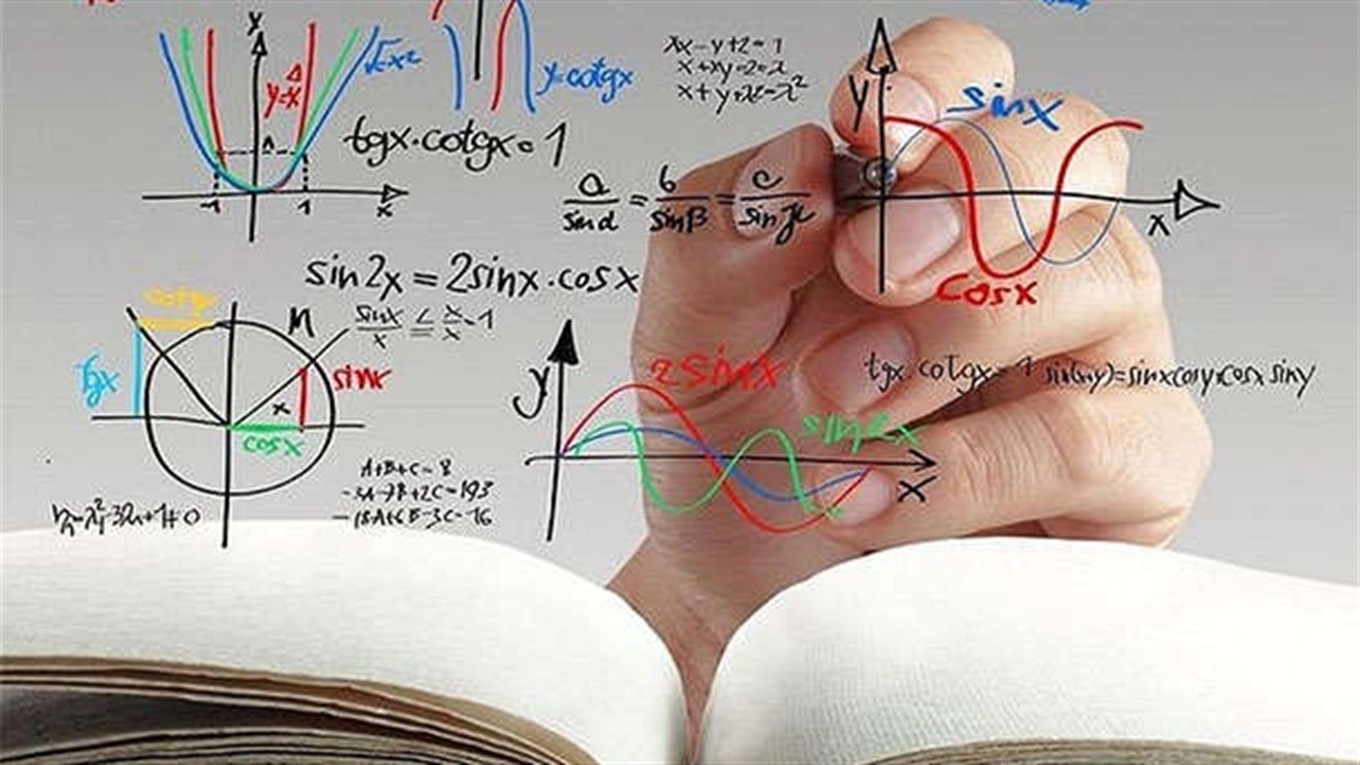 y
y=x
y=cotgx
λx-y+z=1
x+λy-z=λ
x+y+λz=λ²
tgx·cotgx=1
-1 1 x
a/sinα = b/sinβ = c/sinγ
y
sinx
x
cosx
sin2x=2sinx·cosx
sinx/x ≤ x/x = 1
cotgx
M
tgx
sinx
x
cosx
y
2sinx
sin2x
x
tgx cotgx=1
sin(x+y)=sinxcosy+cosx siny
A+B+C=8
-3A-7B+2C=193
-18A+6B-3C=-16